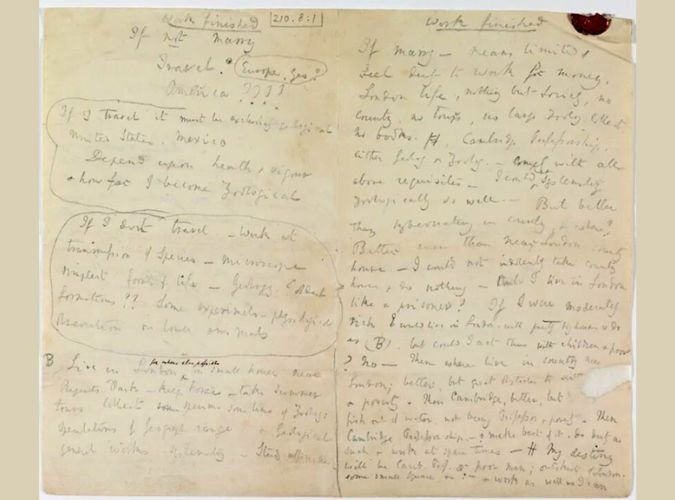 work finished
210.8:1
If not marry
Travel. Europe, yes?
America ????
If I travel it must be exclusively geological
United States, Mexico
Depend upon health & vigour
& how far I become Zoological
If I dont travel — Work at
transmission of Species — microscope
simplest forms of life — Geology.
formations?? Some experiments — physiological
observation on lower animals
B Live in London for where else possible in small house, near
Regents Park — keep horse — take Summer
tours Collect specimens some line of Zoology
Speculations of geograph range & Geological
general works — Systematiz —
work finished
If marry — means limited,
Feel duty to work for money.
London life, nothing but Society, no
country, no tours, no large Zoolog. Collect.
no books. Cambridge Professorship,
either Geolog. or Zoolog. — comply with all
above requisites — I could systematiz
zoologically so well. — But better
than hybernating in country, & where?
Better even than near London country
house — I could not indolently take country
house & do nothing — Could I live in London
like a prisoner? If I were moderately
rich I would live in London, with pretty big house & do
as (B), but could I act thus with children & poor
? No — Then where live in country near
London; better, but great obstacles to science
& poverty. Then Cambridge, better, but
fish out of water, not being Professor & poverty. Then
Cambridge Professorship, — & make best of it, do duty as
such & work at spare times — My destiny
will be Camb. Prof. or poor man; outskirts of London,
some small Square &c: — & work as well as I can